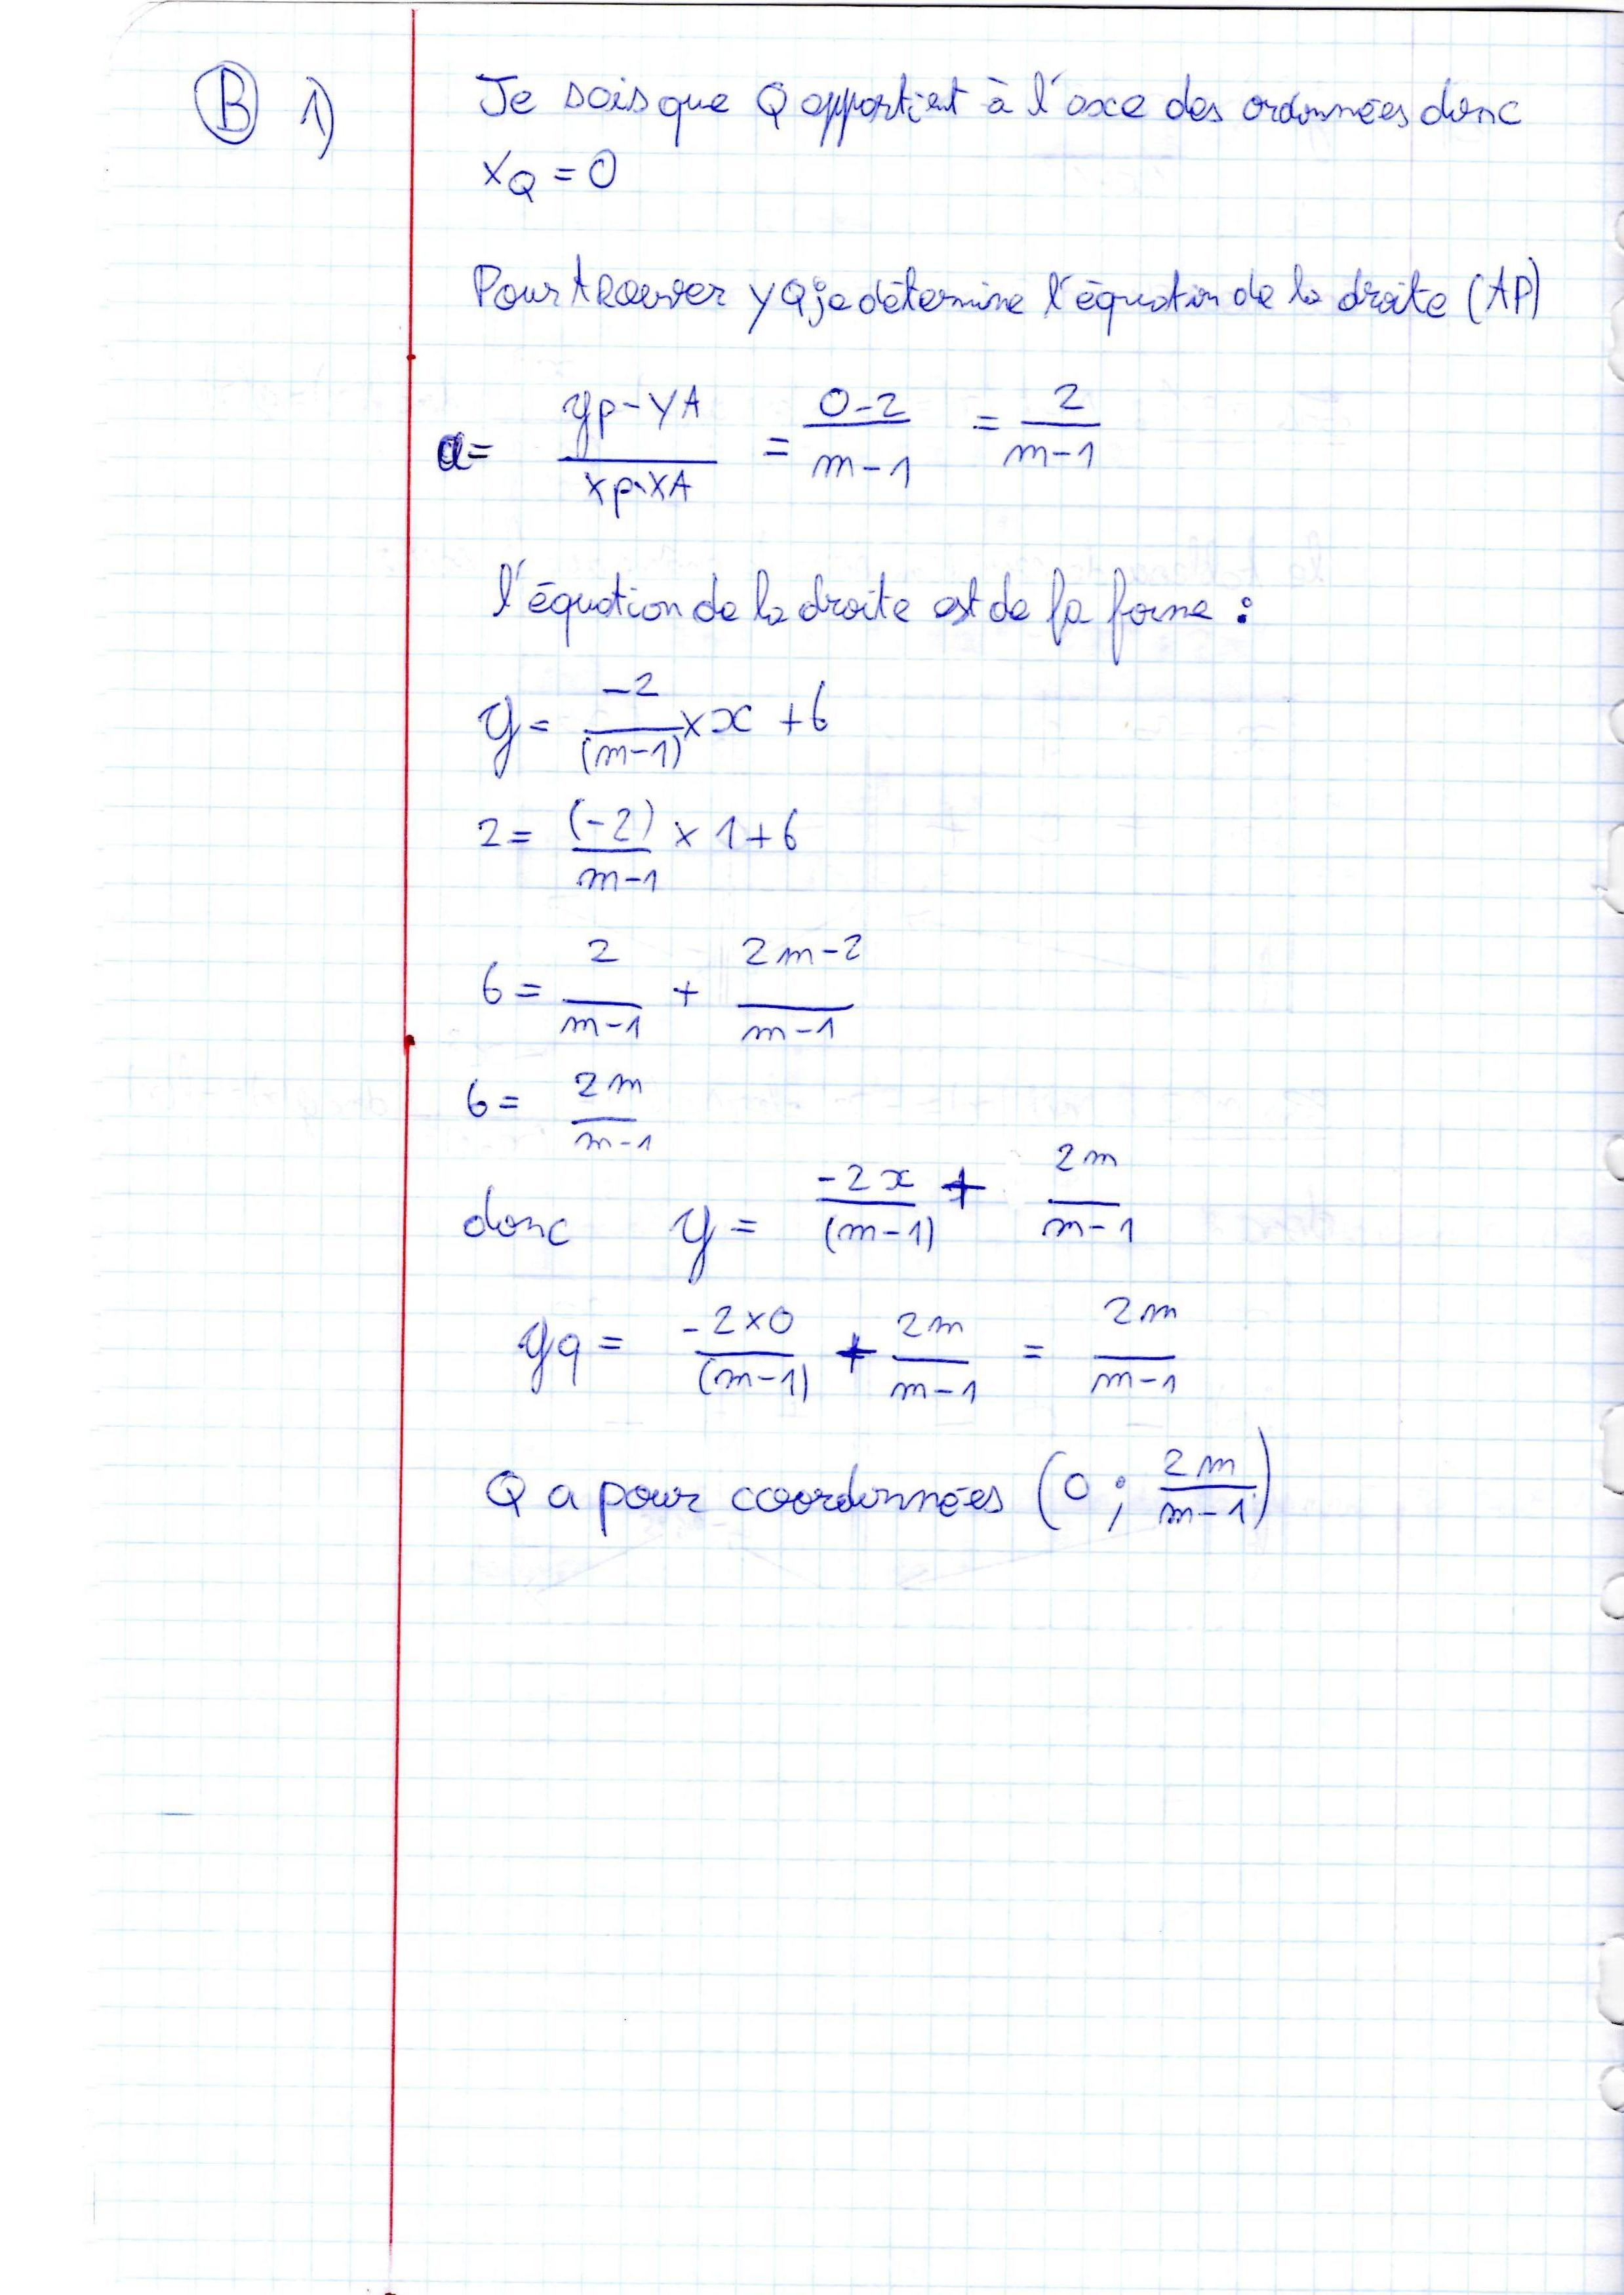 B 1) Je sais que Q appartient à l'axe des ordonnées donc
xQ = 0
Pour trouver yQ je détermine l'équation de la droite (AP)
a = (yP - yA)/(xP - xA) = (0-2)/(m-1) = 2/(m-1)
l'équation de la droite est de la forme :
y = -2/(m-1) × x + b
2 = (-2)/(m-1) × 1 + b
b = 2/(m-1) + (2m-2)/(m-1)
b = 2m/(m-1)
donc y = -2x/(m-1) + 2m/(m-1)
yq = -2×0/(m-1) + 2m/(m-1) = 2m/(m-1)
Q a pour coordonnées (0 ; 2m/(m-1))